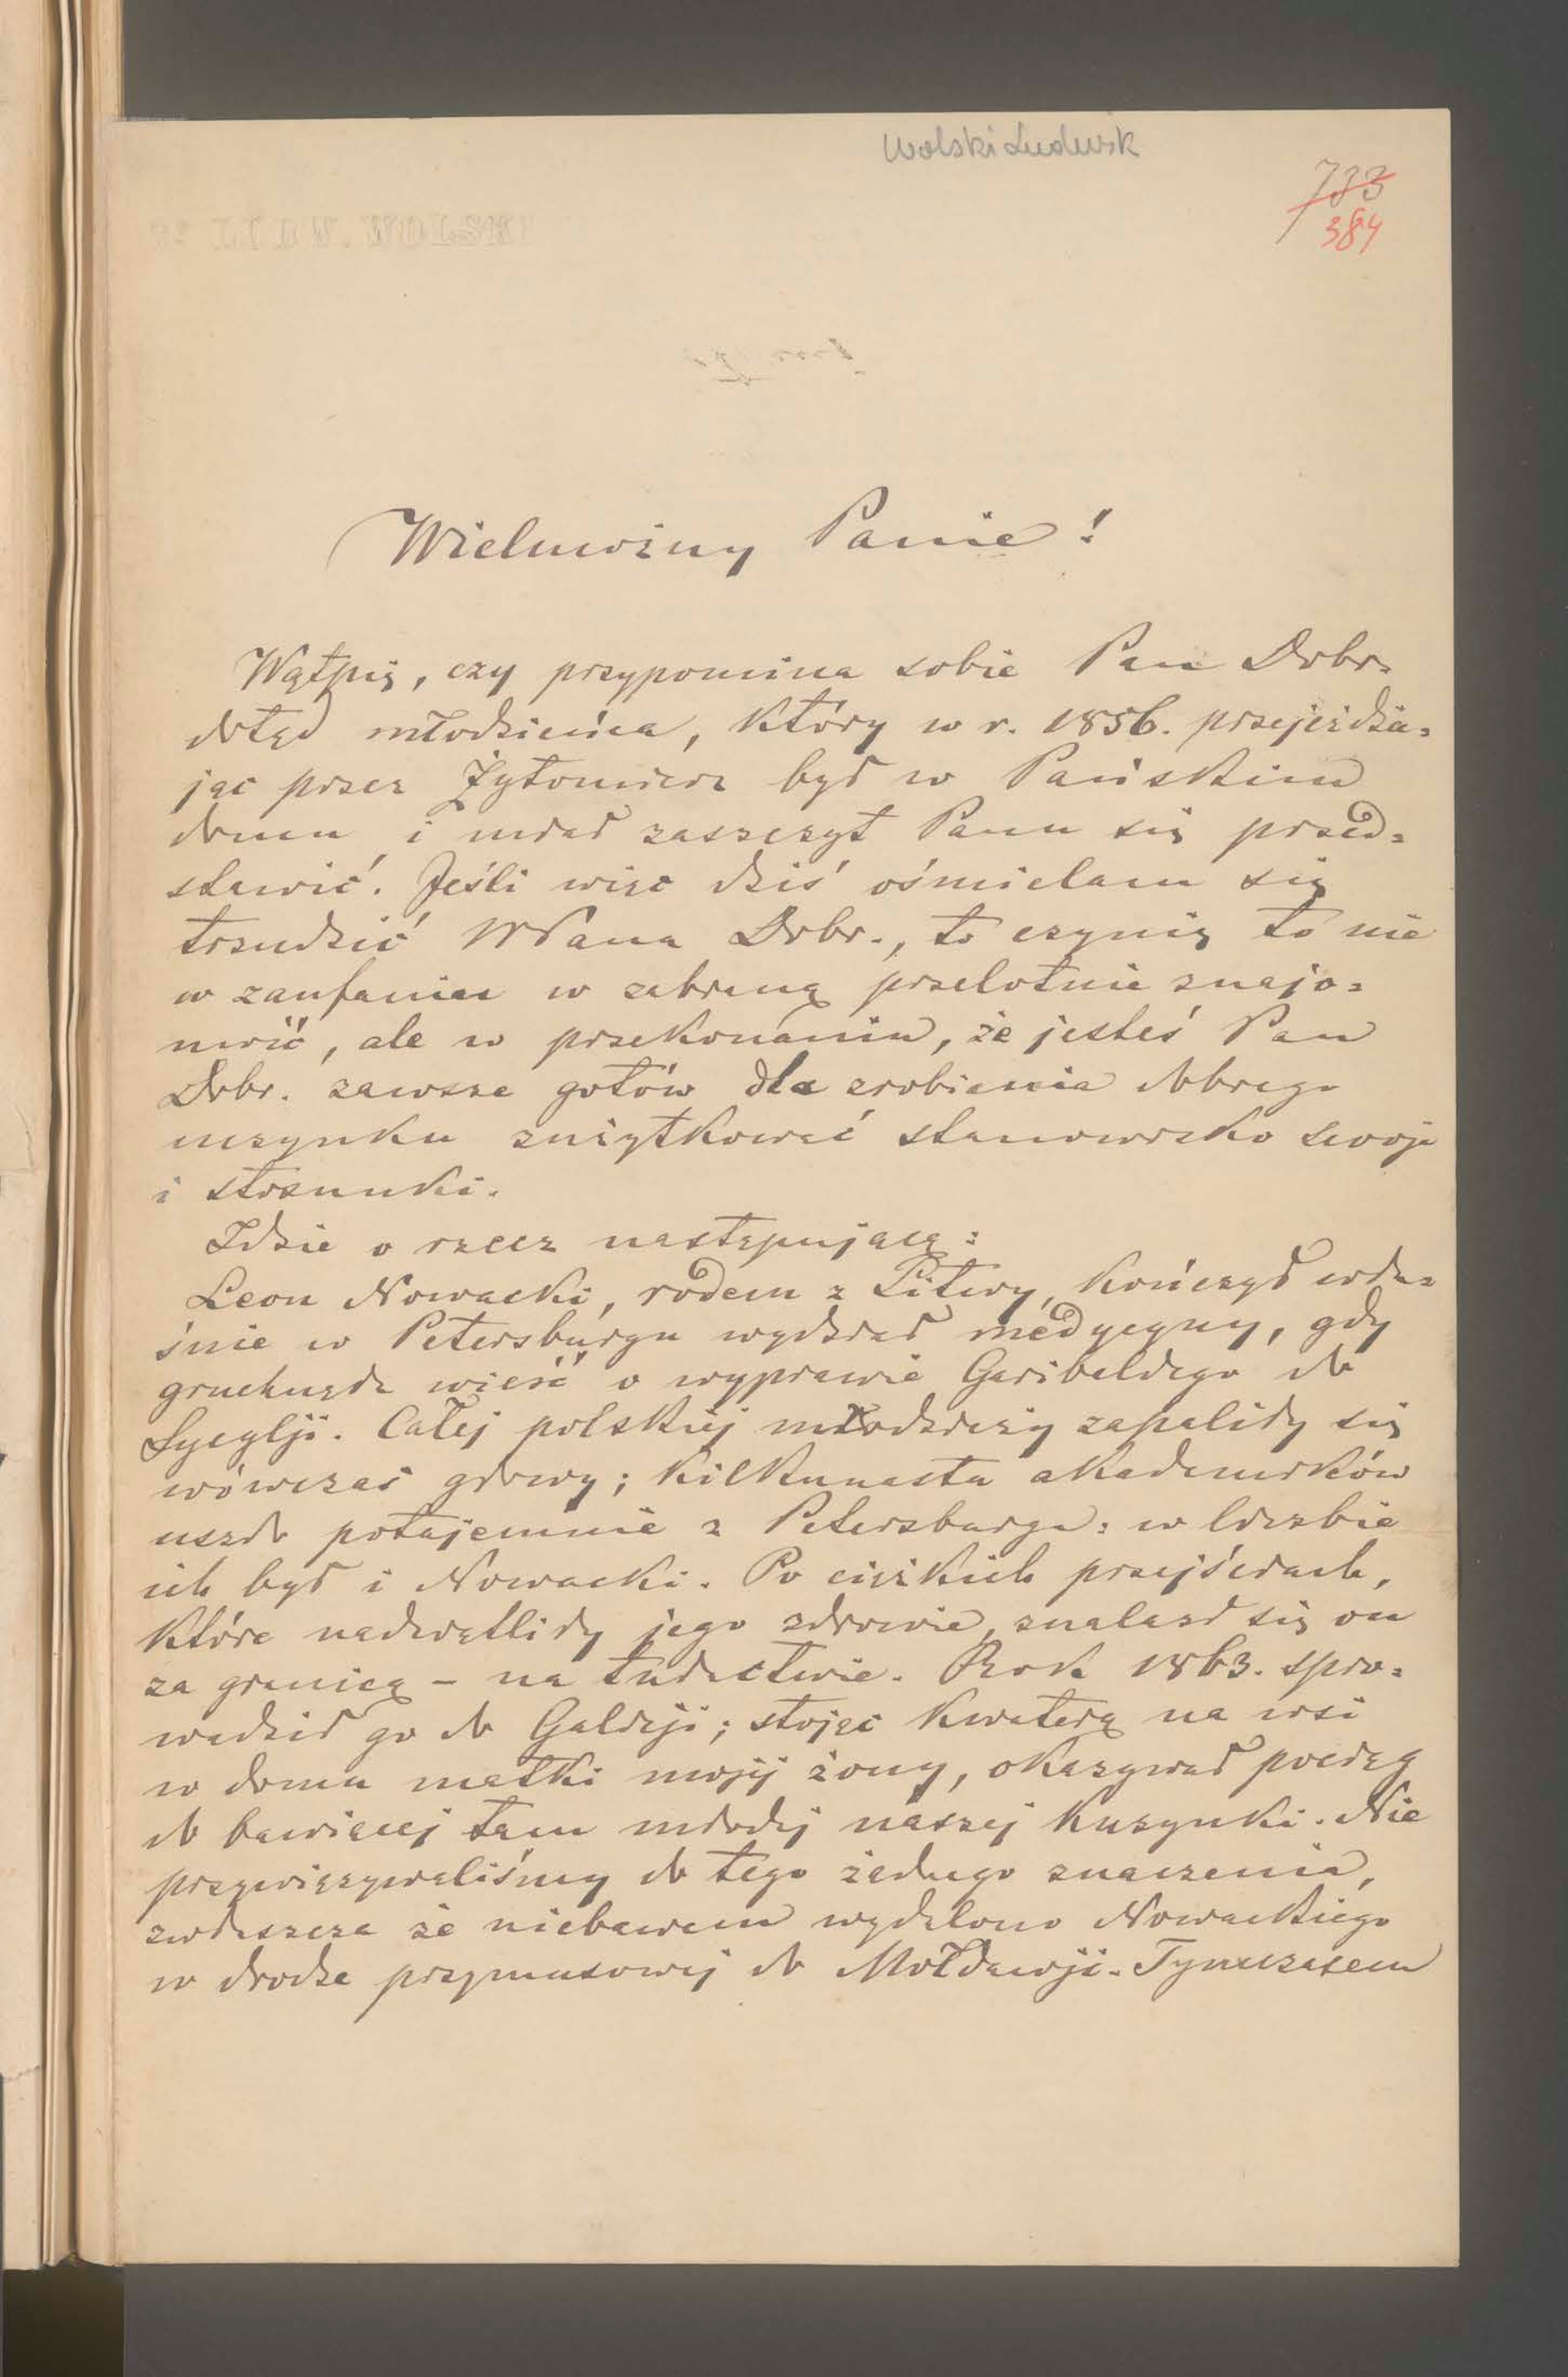 Wolski Ludwik
733
384
Dr LUDW. WOLSKI
Wielmożny Panie!
Wątpię, czy przypomina sobie Pan Dobr.
dotąd młodzieńca, który w r. 1856. przejeżdża=
jąc przez Żytomierz był w Pańskim
domu i miał zaszczyt Panu się przed=
stawić. Jeśli więc dziś ośmielam się
trudzić WPana Dobr., to czynię to nie
w zaufaniu w zabraną przelotnie znajo=
mość, ale w przekonaniu, że jesteś Pan
Dobr. zawsze gotów dla zrobienia dobrego
uczynku zużytkować stanowisko swoje
i stosunki.
Idzie o rzecz następującą:
Leon Nowacki, rodem z Litwy, kończył wła=
śnie w Petersburgu wydział medycyny, gdy
gruchnęła wieść o wyprawie Garibaldego do
Sycylji. Całej polskiej młodzieży zapaliły się
wówczas głowy; kilkunastu akademików
uszło potajemnie z Petersburga: w liczbie
ich był i Nowacki. Po ciężkich przejściach,
które nadwątliły jego zdrowie, znalazł się on
za granicą – na tułactwie. Rok 1863. spro=
wadził go do Galicji; stojąc kwaterą na wsi
w domu matki mojej żony, okazywał pociąg
do bawiącej tam młodej naszej kuzynki. Nie
przywięzywaliśmy do tego żadnego znaczenia,
zwłaszcza że niebawem wydalono Nowackiego
w drodze przymusowej do Mołdawji. Tymczasem